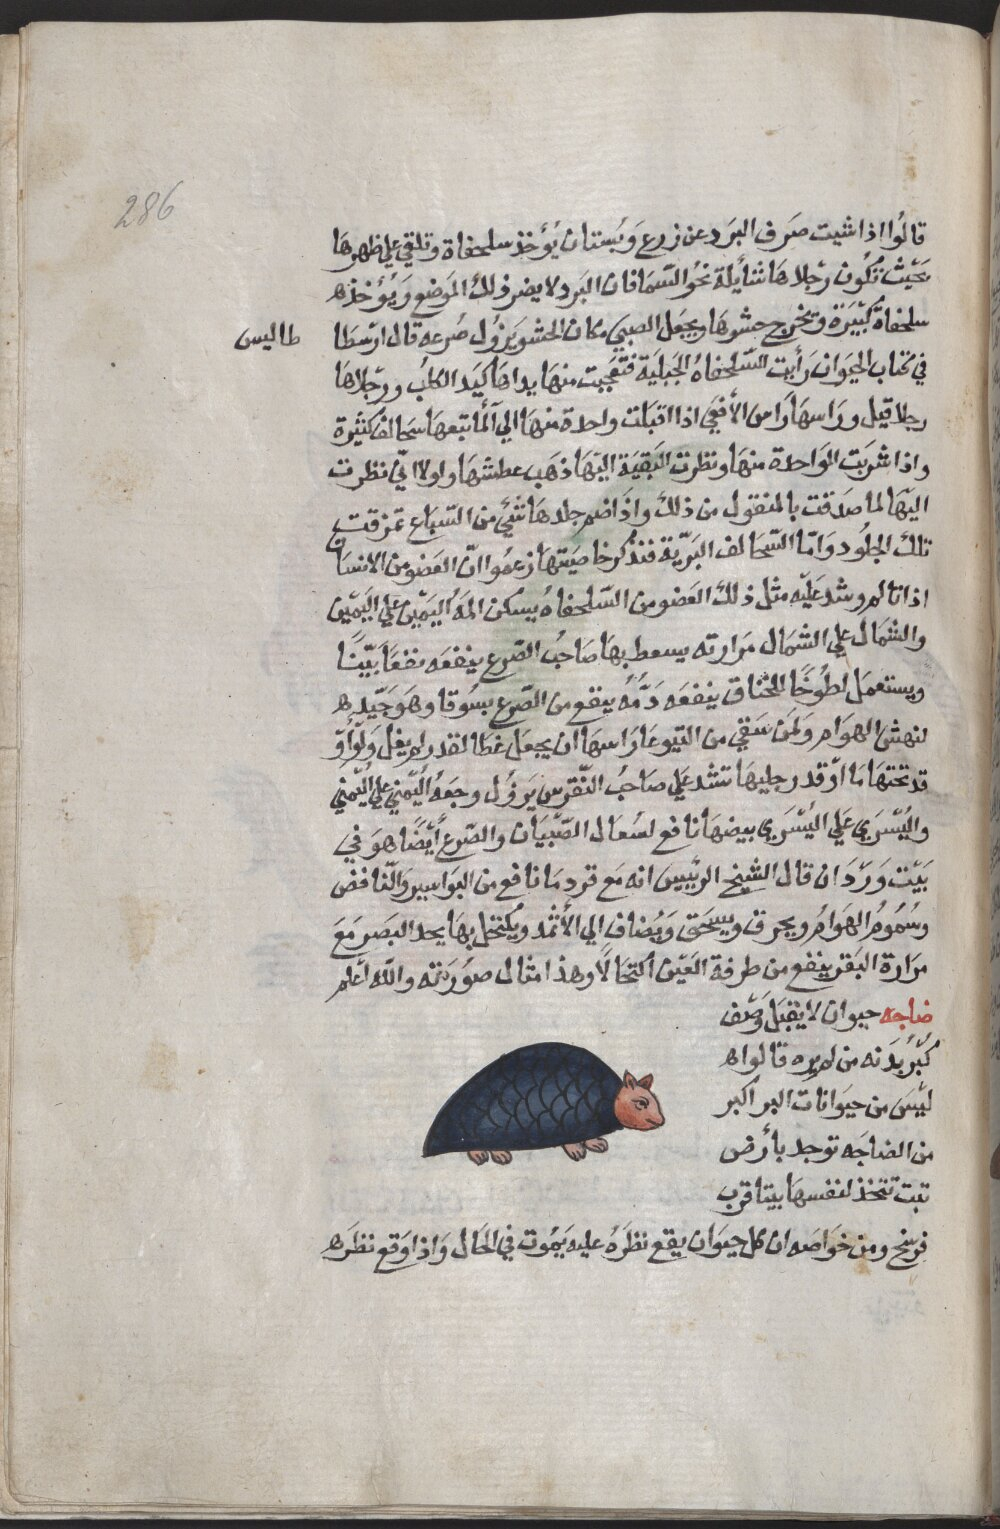 286
قالوا اذا شيت صرف البرد عن زرع وبستان يؤخذ سلحفاة وتلقي علي ظهرها
بحيث تكون رجلاها شأيلة نحو السما فان البرد لا يضر ذلك الموضع ويؤخذ ه
سلحفاة كبيرة وتخرج حشوها ويجعل الصبي مكان الحشو يزول صرعه قال ارسطا طاليس
في كتاب الحيوان رأيت السلحفاة الجبلية فتعجبت منها يداها كيد الكلب ورجلاها
رجلا فيل وراسها راس الأفعي اذا اقبلت واحدة منها الي ألما تبعها سحالف كثيرة
واذا شربت الواحدة منها ونظرت البقية اليها ذهب عطشها ولولا اني نظرت
اليها لما صدقت بالمنقول من ذلك واذا ضم جلدها شئ من السباع تمزقت
تلك الجلود واما السحالف البرية فنذكر خاصيتها زعموا ان العضو من الانسان
اذا تالم وشد عليه مثل ذلك العضو من السلحفاة يسكن المه اليمين علي اليمين
والشمال علي الشمال مرارته يسعط بها صاحب الصرع ينفعه نفعا بيننا
ويستعمل لطوخا للخناق ينفعه دمه ينفع من الصرع بسوقا وهو جيد ه
لنهش الهوام ولمن سقي من اليتوعا راسها ان يجعل غطا لقدر لم يغل ولو أو
قد تحتها ما أوقد رجليها تشد علي صاحب النقرس يزول وجعه اليمني علي اليمني
واليسري علي اليسري بيضها نافع لسعال الصبيان والصرع أيضا هو في
بيت وردان قال الشيخ الرييس انه مع قردمانا نافع من البواسير والنافض
وسموم الهوام ويحرق ويسحق ويضاف الي الأثمد ويكتحل بها يحد البصر مع
مرارة البقر ينفع من طرفة العين اكتحالا وهذا مثال صورته والله اعلم
ضاجه حيوان لا يقبل وصف
كبر بدنه من لم يره قالوا ه
ليس من حيوانات البر اكبر
من الضاجه توجد بأرض
تبت تتخذ لنفسها بيتا قرب
فرسخ ومن خواصه ان كل حيوان يقع نظره عليه يموت في الحال واذا وقع نظره